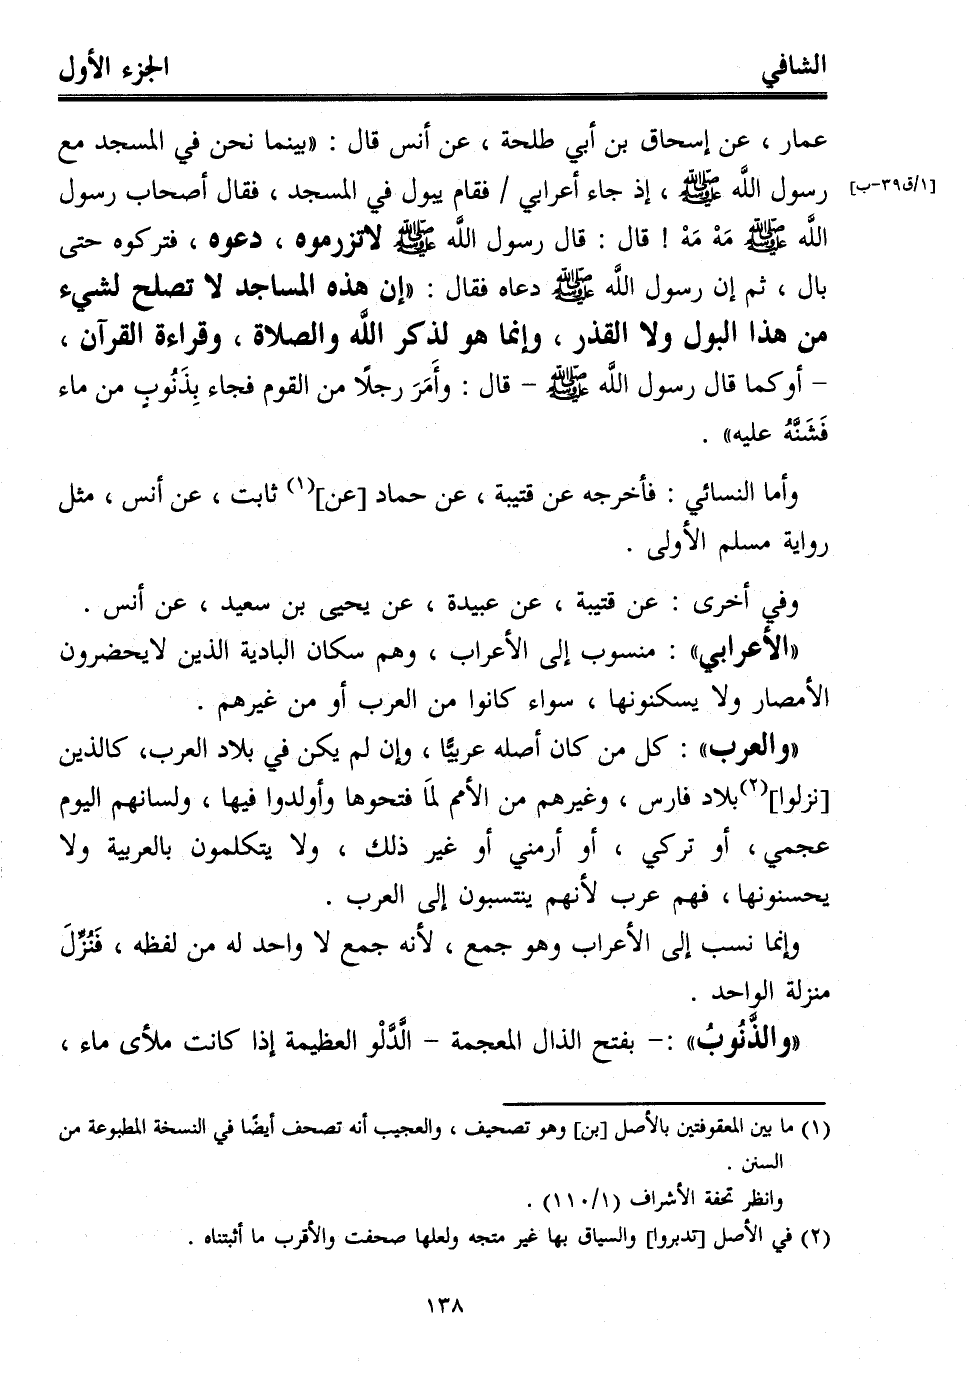 الشافي الجزء الأول
عمار ، عن إسحاق بن أبي طلحة ، عن أنس قال : «بينما نحن في المسجد مع
رسول اللَّه ﷺ ، إذ جاء أعرابي / فقام يبول في المسجد ، فقال أصحاب رسول [١/ق٣٩-ب]
اللَّه ﷺ مَهْ مَهْ ! قال : قال رسول اللَّه ﷺ لاتزرموه ، دعوه ، فتركوه حتى
بال ، ثم إن رسول اللَّه ﷺ دعاه فقال : «إن هذه المساجد لا تصلح لشيء
من هذا البول ولا القذر ، وإنما هو لذكر اللَّه والصلاة ، وقراءة القرآن ،
- أوكما قال رسول اللَّه ﷺ - قال : وأَمَرَ رجلًا من القوم فجاء بِذَنُوبٍ من ماء
فَشَنَّهُ عليه» .
وأما النسائي : فأخرجه عن قتيبة ، عن حماد [عن](١) ثابت ، عن أنس ، مثل
رواية مسلم الأولى .
وفي أخرى : عن قتيبة ، عن عبيدة ، عن يحيى بن سعيد ، عن أنس .
«الأعرابي» : منسوب إلى الأعراب ، وهم سكان البادية الذين لايحضرون
الأمصار ولا يسكنونها ، سواء كانوا من العرب أو من غيرهم .
«والعرب» : كل من كان أصله عربيًّا ، وإن لم يكن في بلاد العرب، كالذين
[نزلوا](٢)بلاد فارس ، وغيرهم من الأمم لمَا فتحوها وأولدوا فيها ، ولسانهم اليوم
عجمي، أو تركي ، أو أرمني أو غير ذلك ، ولا يتكلمون بالعربية ولا
يحسنونها، فهم عرب لأنهم ينتسبون إلى العرب .
وإنما نسب إلى الأعراب وهو جمع ، لأنه جمع لا واحد له من لفظه ، فَنُزِّلَ
منزلة الواحد .
«والذَّنُوبُ» :- بفتح الذال المعجمة - الَّدَّلْو العظيمة إذا كانت ملأى ماء ،
(١) ما بين المعقوفتين بالأصل [بن] وهو تصحيف ، والعجيب أنه تصحف أيضًا في النسخة المطبوعة من
السنن .
وانظر تحفة الأشراف (١/١١٠) .
(٢) في الأصل [تدبروا] والسياق بها غير متجه ولعلها صحفت والأقرب ما أثبتناه .
١٣٨